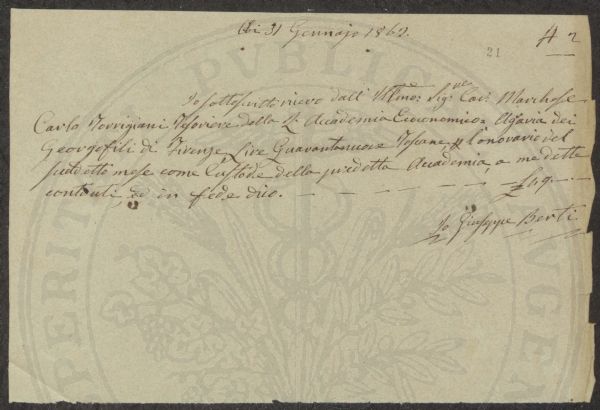 Adi 31 Gennajo 1862.
4 2
21
Io sottoscritto ricevo dall' Illmo: Sigre Cav: Marchese
Carlo Torrigiani Tesoriere della R Accademia Economico = Agraria dei
Georgofili di Firenze Lire Quarantanove Toscane p l'onorario del
suddetto mese come Custode della predetta Accademia, a me detto
contanti, ed in fede dico. - - - - - - - £49.-
Io Giuseppe Berti
PUBLICAE
PROSPERITATI
AUGENDAE